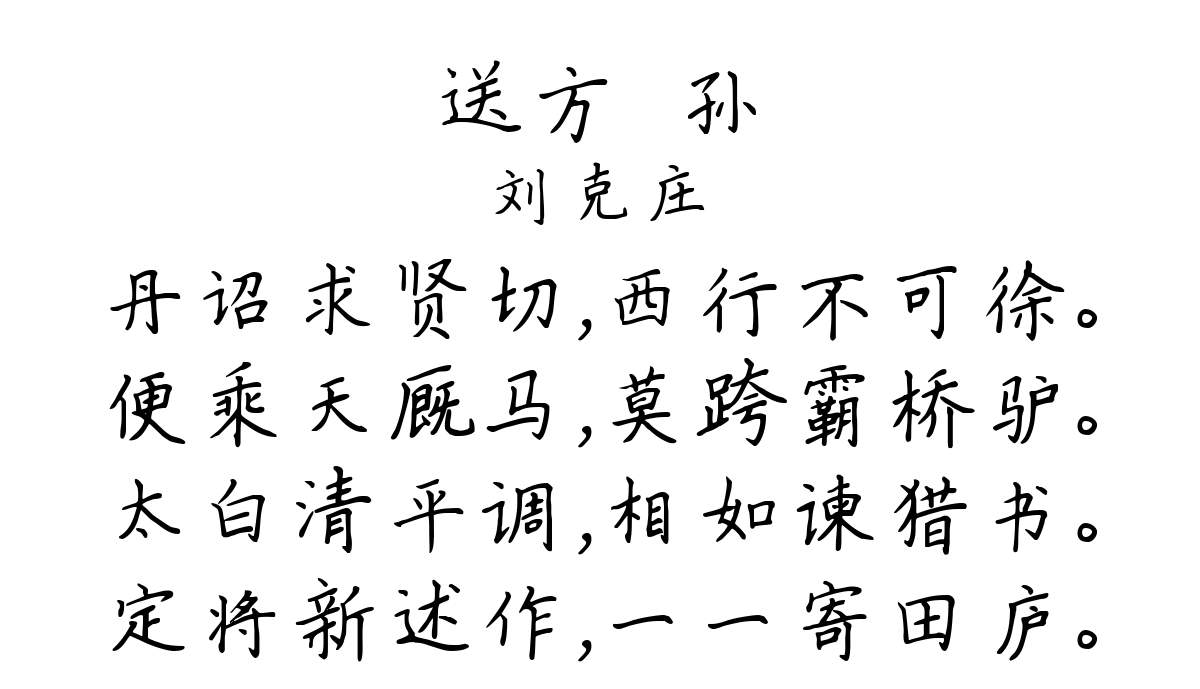 送方 孙
刘克庄
丹诏求贤切,西行不可徐。
便乘天厩马,莫跨霸桥驴。
太白清平调,相如谏猎书。
定将新述作,一一寄田庐。